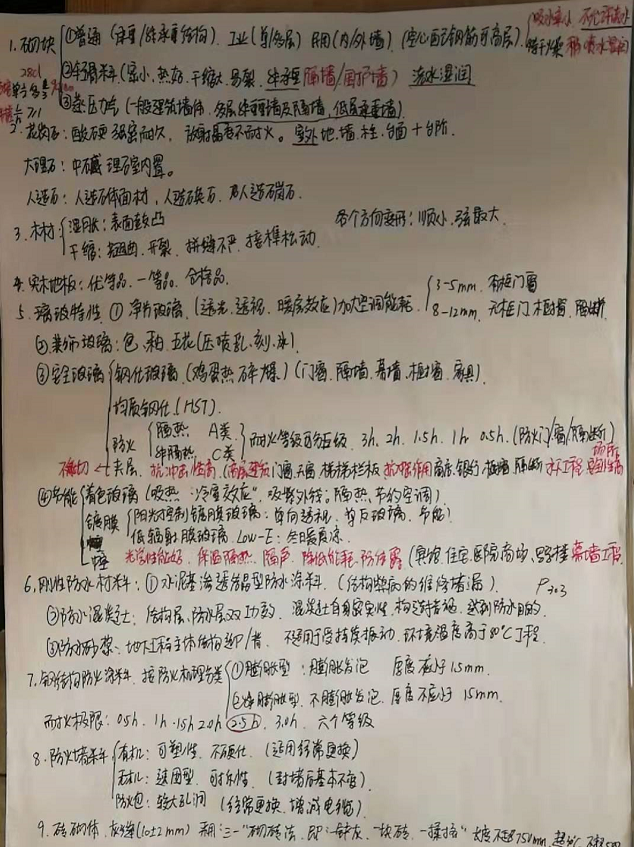 1. 砌块 ①普通（承重/非承重结构）. 工业（单/多层）民用（内/外墙）
②轻骨料（ 小, 热好, 干缩大 易裂, 非承重 隔墙/围护墙） 浇水湿润
③蒸压加气（一般建筑墙体, 多层 非承重墙及隔墙, 低层承重墙）
2. 花岗石: 酸硬 强密耐久, 放射 不耐火。室外 地.墙.柱.台面+台阶.
大理石: 中 室内 。
人造石: 人造石 面材, 人造石英石, 人造石岗石.
3. 木材: 湿胀: 表面鼓凸 各个方向变形: 顺小. 弦最大.
干缩: 翘曲. 开裂. 拼缝不严. 接榫松动.
4. 实木地板: 优等品. 一等品. 合格品.
5. 玻特性. ① 净片玻璃. (透光. 透视. 暖房效应) 加大空调能耗. 3-5mm. 有框门窗
8-12mm. 无框门 隔断
②装饰玻璃: 色. 釉. 压花(压喷乳.刻.冰).
③安全玻璃 钢化玻璃 (鸡蛋热碎爆) (门窗. 隔墙. 幕墙. 橱窗. 家具).
均质钢化 (HST).
防火 隔热 A类
非隔热 C类 耐火等级可分五级. 3h. 2h. 1.5h. 1h 0.5h. (防火门/窗/隔断)
不能切 夹层. 抗冲击性高. 门窗. 天窗. 楼梯栏板. 商店. 银行 橱窗. 隔断 水下工程
④节能 着色玻璃 (吸热 "冷室效应". 吸紫外线. 隔热. 节约空调).
镀膜 阳光控制镀膜玻璃: 单向透视. 单反玻璃. 节能).
低辐射膜玻璃. Low-E: 冬暖夏凉.
中空 光学性能好. 保温隔热. 隔声. 降低能耗. 防结露 (宾馆. 住宅. 医院. 商场. 写字楼 幕墙工程.
6. 刚性防水材料: ①水泥基渗透结晶型防水涂料. (结构 病的维修堵漏). P303
②防水混凝土: 结构层. 防水层双功效. 混凝土自身密实性. 构造措施. 达到防水目的.
③防水砂浆: 地下工程主体结构迎/背. 不适用于受持续振动. 环境温度高于80℃工程.
7. 钢结构防火涂料. 按防火机理分类 ①膨胀型: 膨胀发泡 厚度不应小于1.5mm.
②非膨胀型. 不膨胀发泡. 厚度不应小于 15mm.
耐火极限: 0.5h. 1h. 1.5h 2.0h 2.5h. 3.0h. 六个等级
8. 防火堵料 有机: 可塑性. 不硬化. (适用经常更换)
无机: 速固型. 可拆性. (封堵后基本不变)
防火包: 较大孔洞 (经常更换. 增减电缆)
9. 砖砌体. 灰缝(10±2mm) 采用"三一"砌砖法. 即: 一铲灰. 一块砖. 一揉挤" 长度不超750mm.